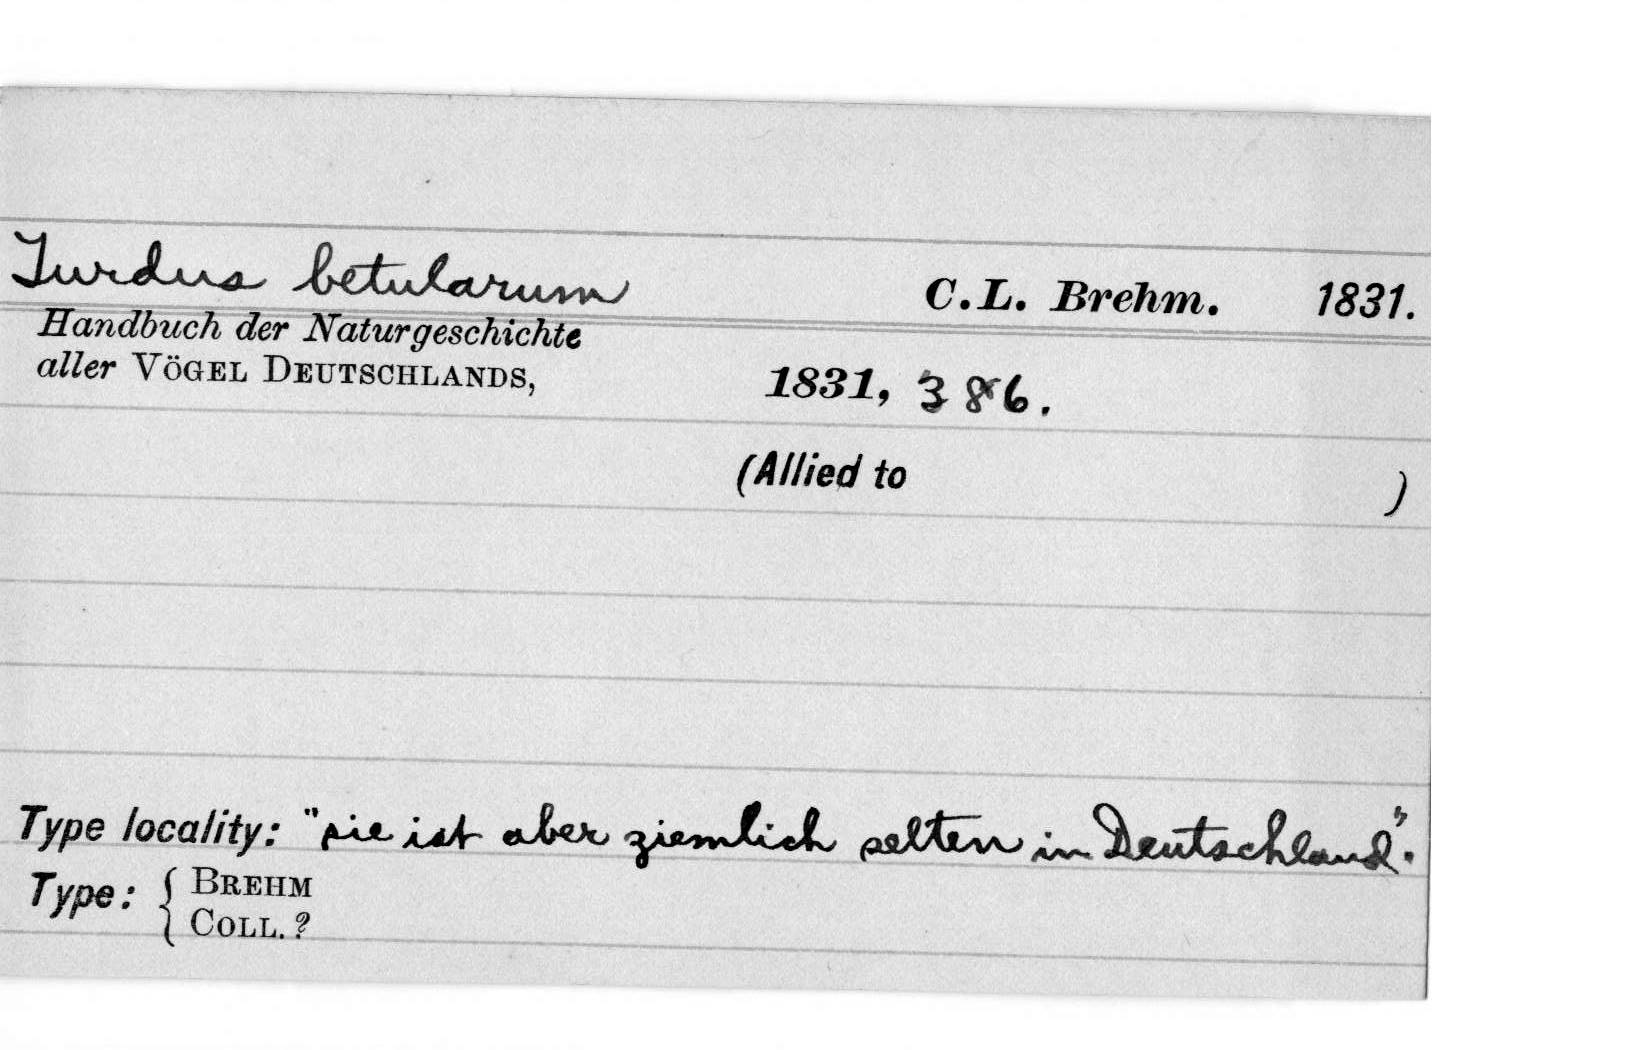 Turdus betularum C.L. Brehm. 1831.
Handbuch der Naturgeschichte
aller VÖGEL DEUTSCHLANDS, 1831, 386.
(Allied to )
Type locality: "sie ist aber ziemlich selten in Deutschland".
Type: { BREHM
COLL. ?